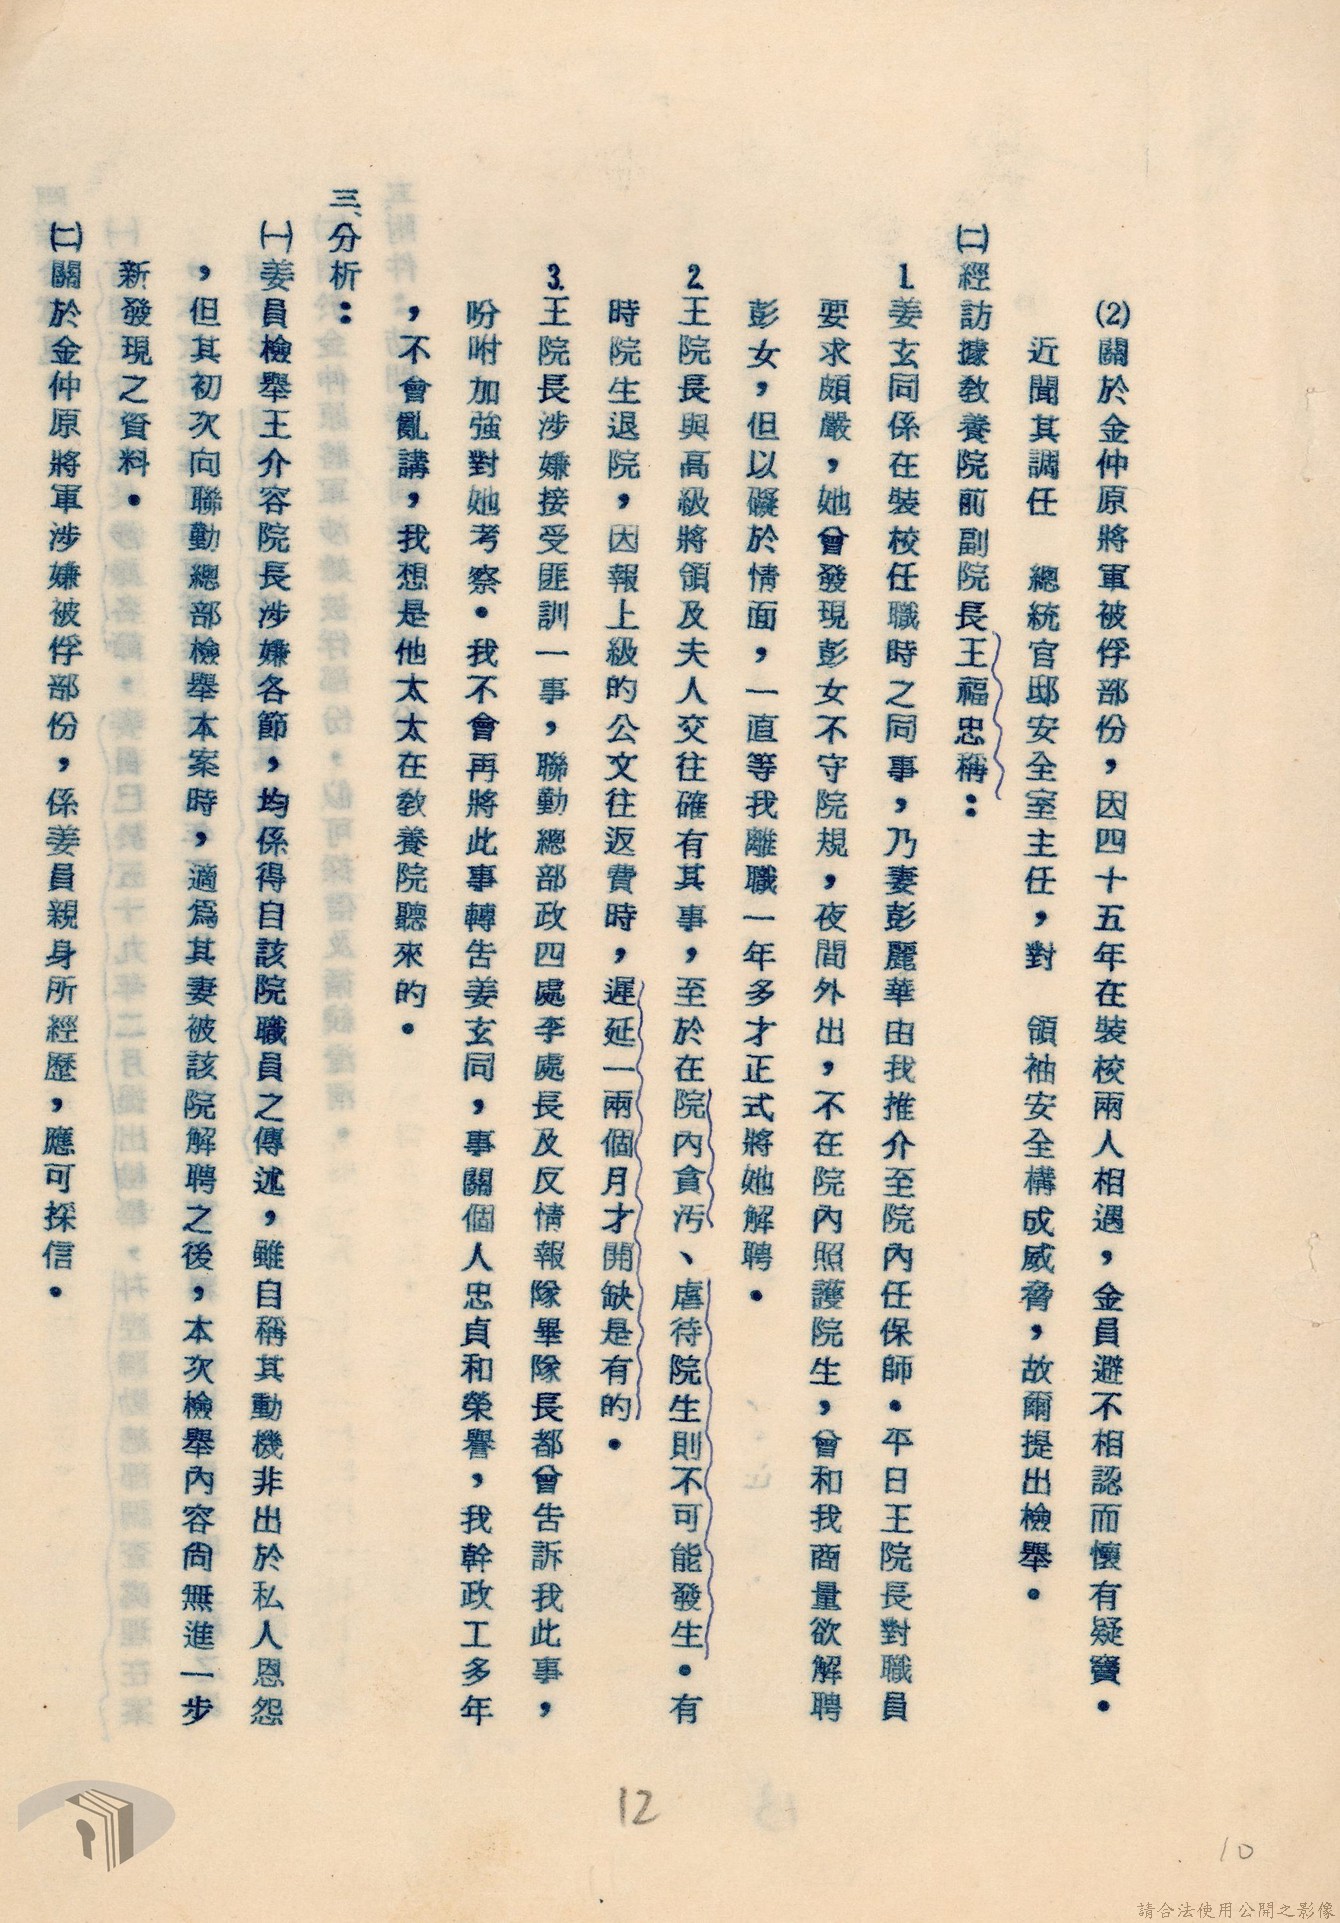 ⑵關於金仲原將軍被俘部份，因四十五年在裝校兩人相遇，金員避不相認而懷有疑竇。
近聞其調任　總統官邸安全室主任，對　領袖安全構成威脅，故爾提出檢舉。
㈡經訪據教養院前副院長王福忠稱：
1.姜玄同係在裝校任職時之同事，乃妻彭麗華由我推介至院內任保師。平日王院長對職員
要求頗嚴，她曾發現彭女不守院規，夜間外出，不在院內照護院生，曾和我商量欲解聘
彭女，但以礙於情面，一直等我離職一年多才正式將她解聘。
2.王院長與高級將領及夫人交往確有其事，至於在院內貪污、虐待院生則不可能發生。有
時院生退院，因報上級的公文往返費時，遲延一兩個月才開缺是有的。
3.王院長涉嫌接受匪訓一事，聯勤總部政四處李處長及反情報隊畢隊長都曾告訴我此事，
吩咐加強對她考察。我不會再將此事轉告姜玄同，事關個人忠貞和榮譽，我幹政工多年
，不會亂講，我想是他太太在教養院聽來的。
三、分析：
㈠姜員檢舉王介容院長涉嫌各節，均係得自該院職員之傳述，雖自稱其動機非出於私人恩怨
，但其初次向聯勤總部檢舉本案時，適為其妻被該院解聘之後，本次檢舉內容尚無進一步
新發現之資料。
㈡關於金仲原將軍涉嫌被俘部份，係姜員親身所經歷，應可採信。
12
10
請合法使用公開之影像